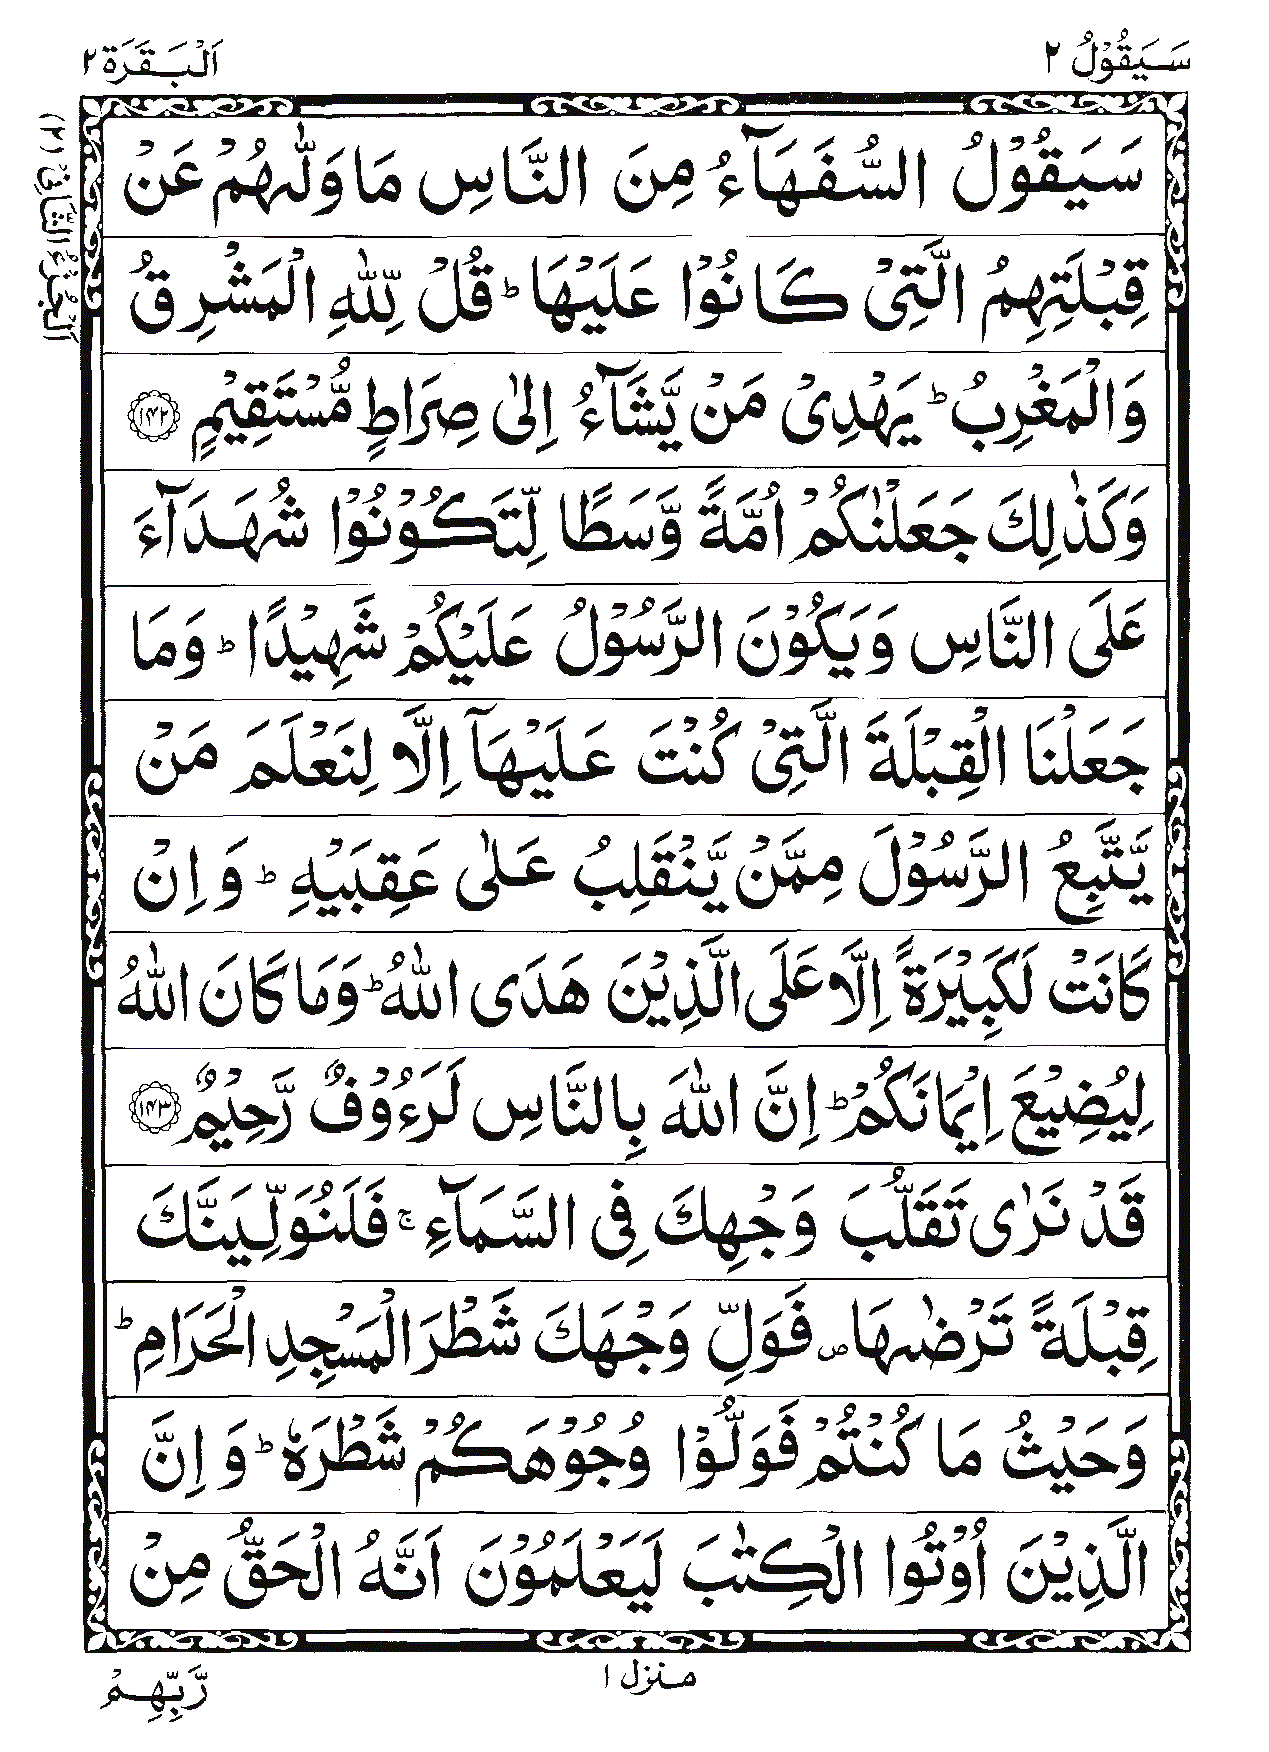 سَيَقُوْلُ ٢
اَلْبَقَرَة ٢
اَلْجُزْءُ الثَّانِیْ (٢)
سَيَقُوْلُ السُّفَهَآءُ مِنَ النَّاسِ مَا وَلّٰىهُمْ عَنْ
قِبْلَتِهِمُ الَّتِیْ كَانُوْا عَلَيْهَا ؕ قُلْ لِّلّٰهِ الْمَشْرِقُ
وَالْمَغْرِبُ ؕ يَهْدِیْ مَنْ يَّشَآءُ اِلٰی صِرَاطٍ مُّسْتَقِيْمٍ ﴿۱۴۲﴾
وَكَذٰلِكَ جَعَلْنٰكُمْ اُمَّةً وَّسَطًا لِّتَكُوْنُوْا شُهَدَآءَ
عَلَی النَّاسِ وَيَكُوْنَ الرَّسُوْلُ عَلَيْكُمْ شَهِيْدًا ؕ وَمَا
جَعَلْنَا الْقِبْلَةَ الَّتِیْ كُنْتَ عَلَيْهَآ اِلَّا لِنَعْلَمَ مَنْ
يَّتَّبِعُ الرَّسُوْلَ مِمَّنْ يَّنْقَلِبُ عَلٰی عَقِبَيْهِ ؕ وَ اِنْ
كَانَتْ لَكَبِيْرَةً اِلَّا عَلَی الَّذِيْنَ هَدَی اللّٰهُ ؕ وَمَا كَانَ اللّٰهُ
لِيُضِيْعَ اِيْمَانَكُمْ ؕ اِنَّ اللّٰهَ بِالنَّاسِ لَرَءُوْفٌ رَّحِيْمٌ ﴿۱۴۳﴾
قَدْ نَرٰی تَقَلُّبَ وَجْهِكَ فِی السَّمَآءِ ۚ فَلَنُوَلِّيَنَّكَ
قِبْلَةً تَرْضٰىهَا ۪ فَوَلِّ وَجْهَكَ شَطْرَ الْمَسْجِدِ الْحَرَامِ ؕ
وَحَيْثُ مَا كُنْتُمْ فَوَلُّوْا وُجُوْهَكُمْ شَطْرَهٗ ؕ وَ اِنَّ
الَّذِيْنَ اُوْتُوا الْكِتٰبَ لَيَعْلَمُوْنَ اَنَّهُ الْحَقُّ مِنْ
منزل ١
رَّبِّهِمْ